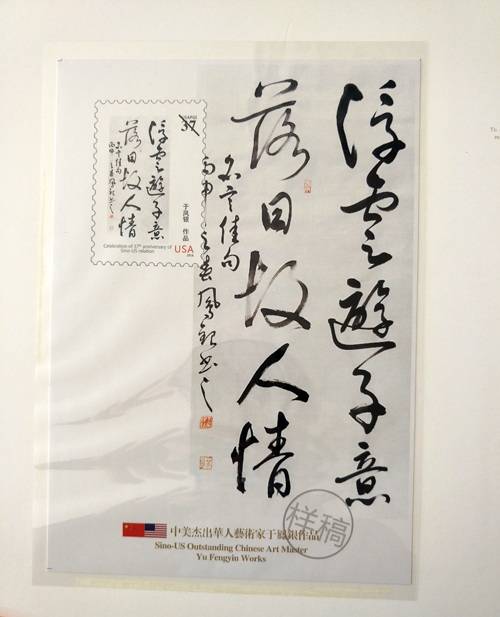 浮雲遊子意
落日故人情
名言佳句
丙申之春鳳銀書之
37
浮雲遊子意
落日故人情
名言佳句
丙申之春鳳銀書之
于凤银 作品
Celebration of 37th anniversary of
Sino-US relation
USA
样稿
中美杰出華人藝術家于鳳銀作品
Sino-US Outstanding Chinese Art Master
Yu Fengyin Works